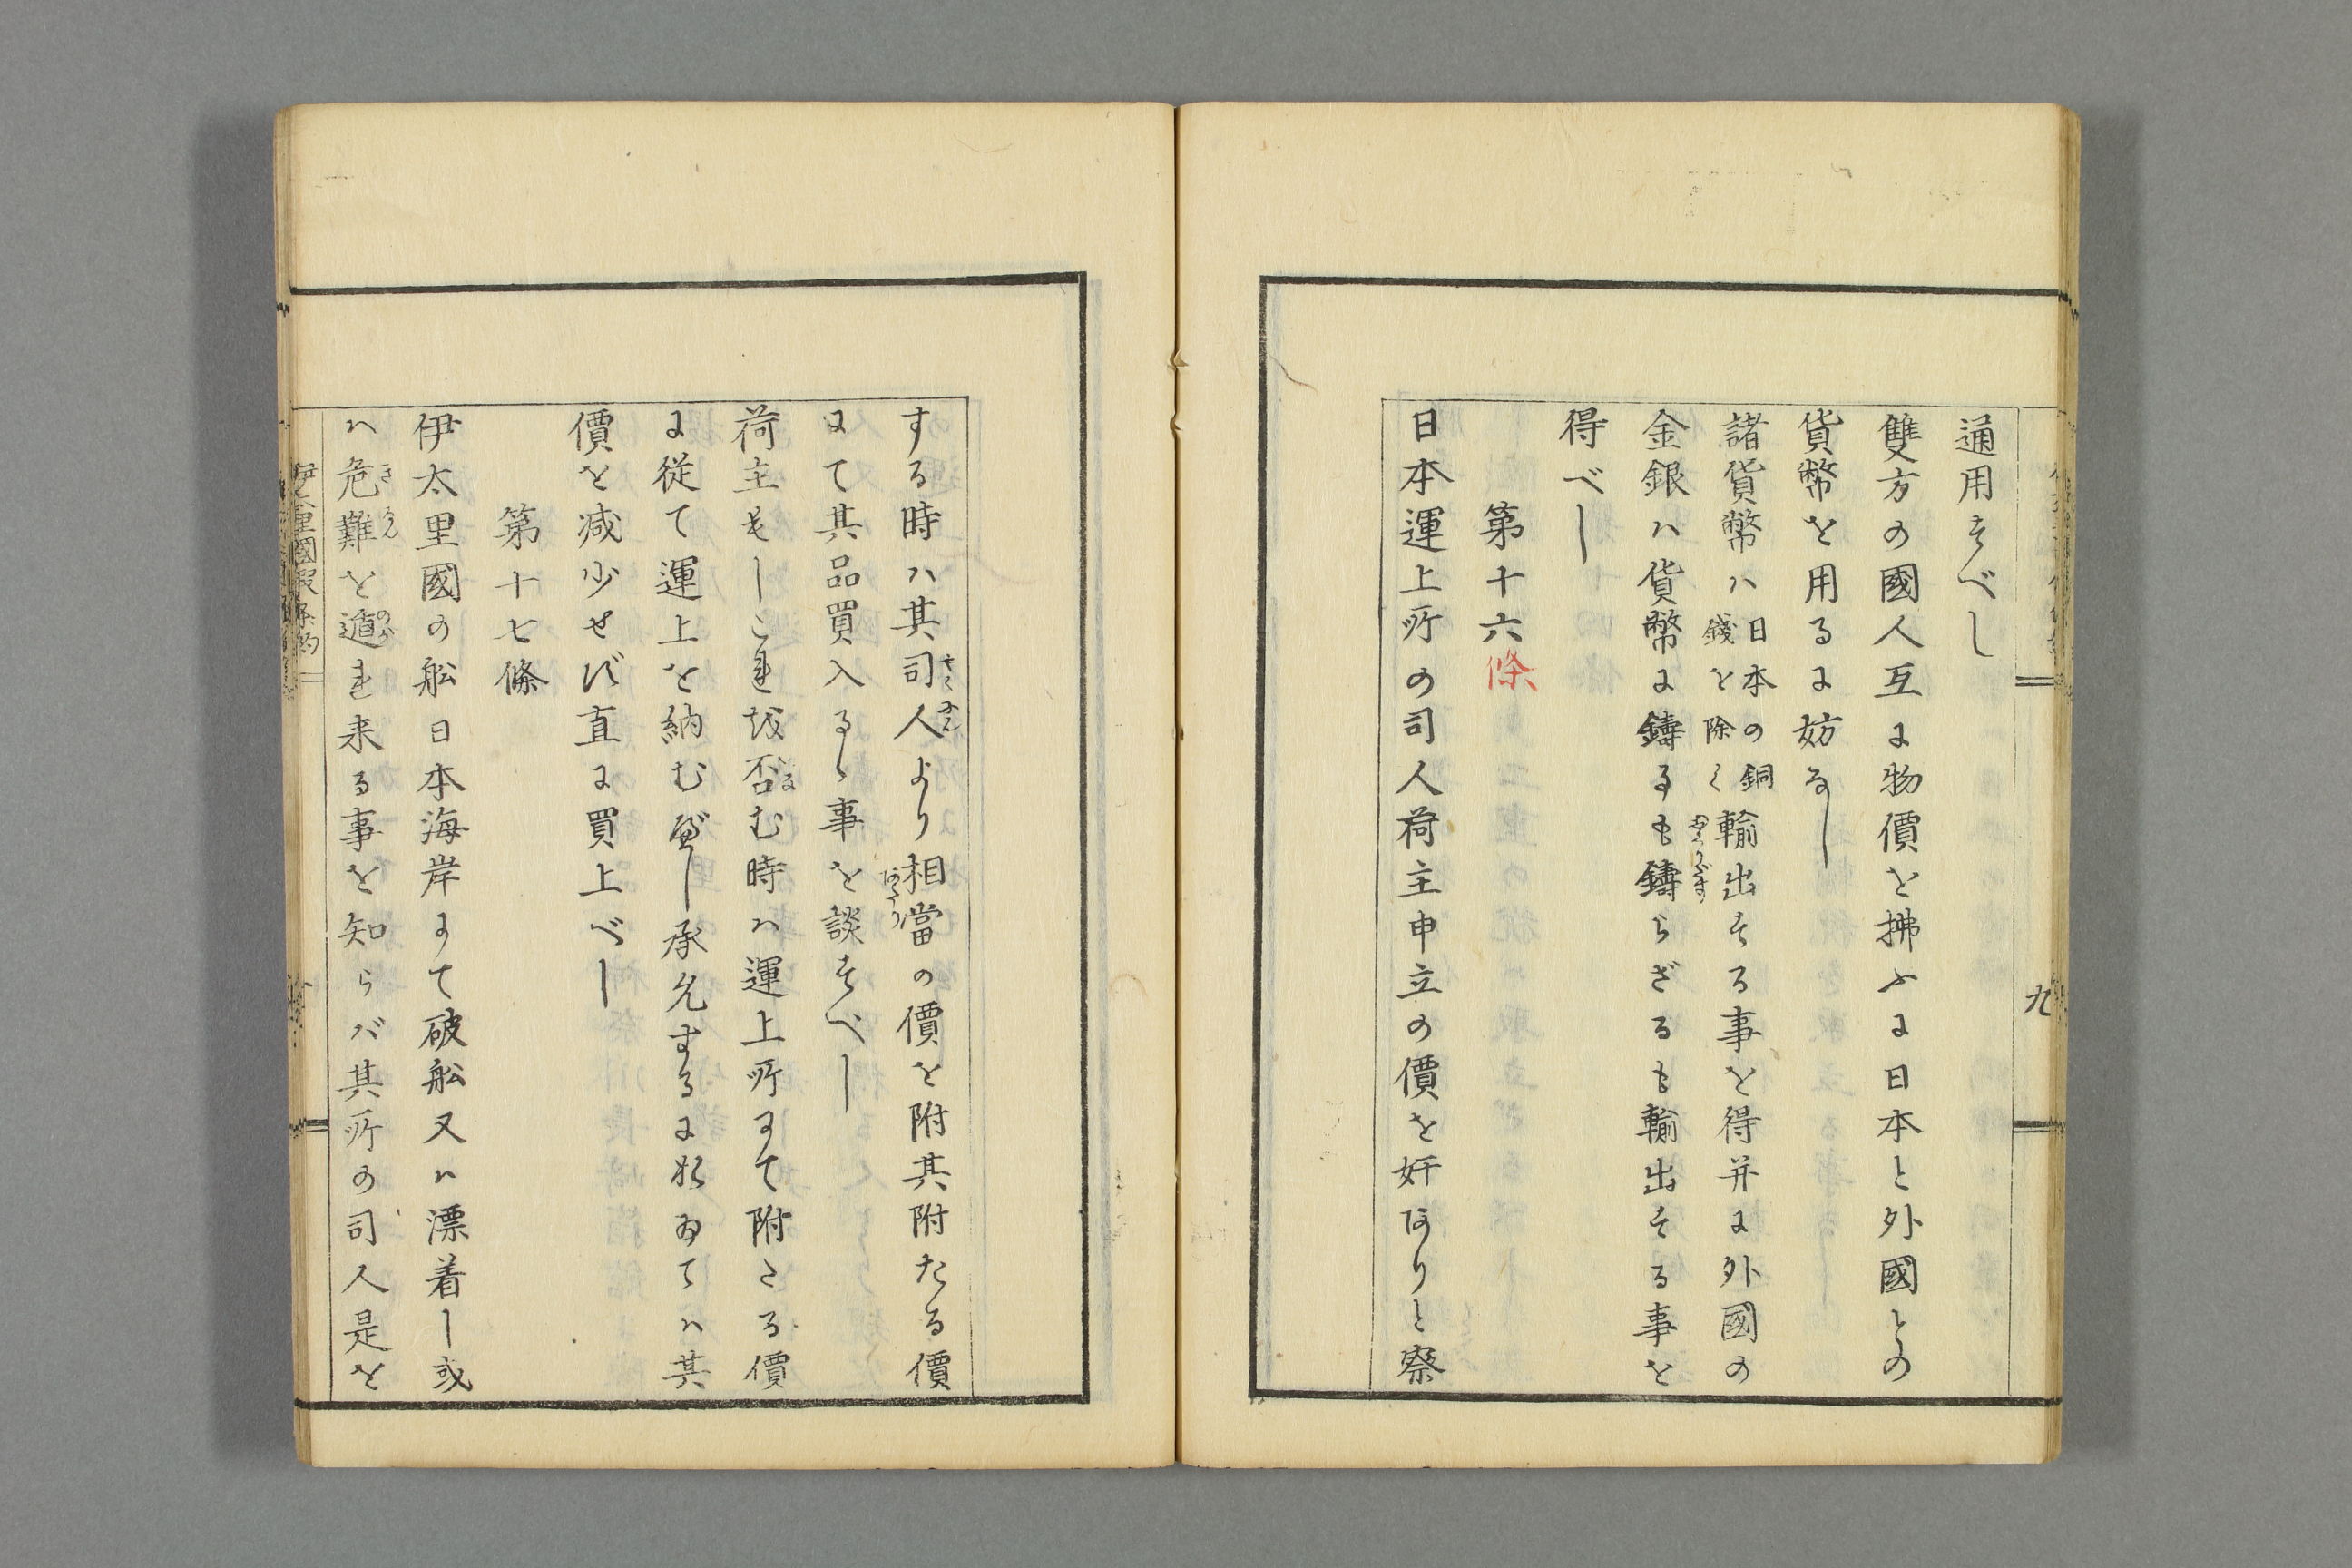 九
通用すべし
雙方の國人互に物價を拂ふに日本と外國との
貨幣を用るに妨なし
諸貨幣ハ日本の銅錢を除く輸出する事を得并に外國の
金銀ハ貨幣に鑄るも鑄らざるも輸出する事を
得べし
第十六條
日本運上所の司人荷主申立の價を奸ありと察
する時ハ其司人より相當の價を附其附たる價
にて其品買入るゝ事を談すべし
荷主もしこれを否む時ハ運上所にて附たる價
に従て運上を納むべし承允するに於ゐてハ其
價を减少せず直に買上べし
第十七條
伊太里國の舩日本海岸にて破舩又ハ漂着し或
ハ危難を遁れ来る事を知らバ其所の司人是を
伊太里國假条約